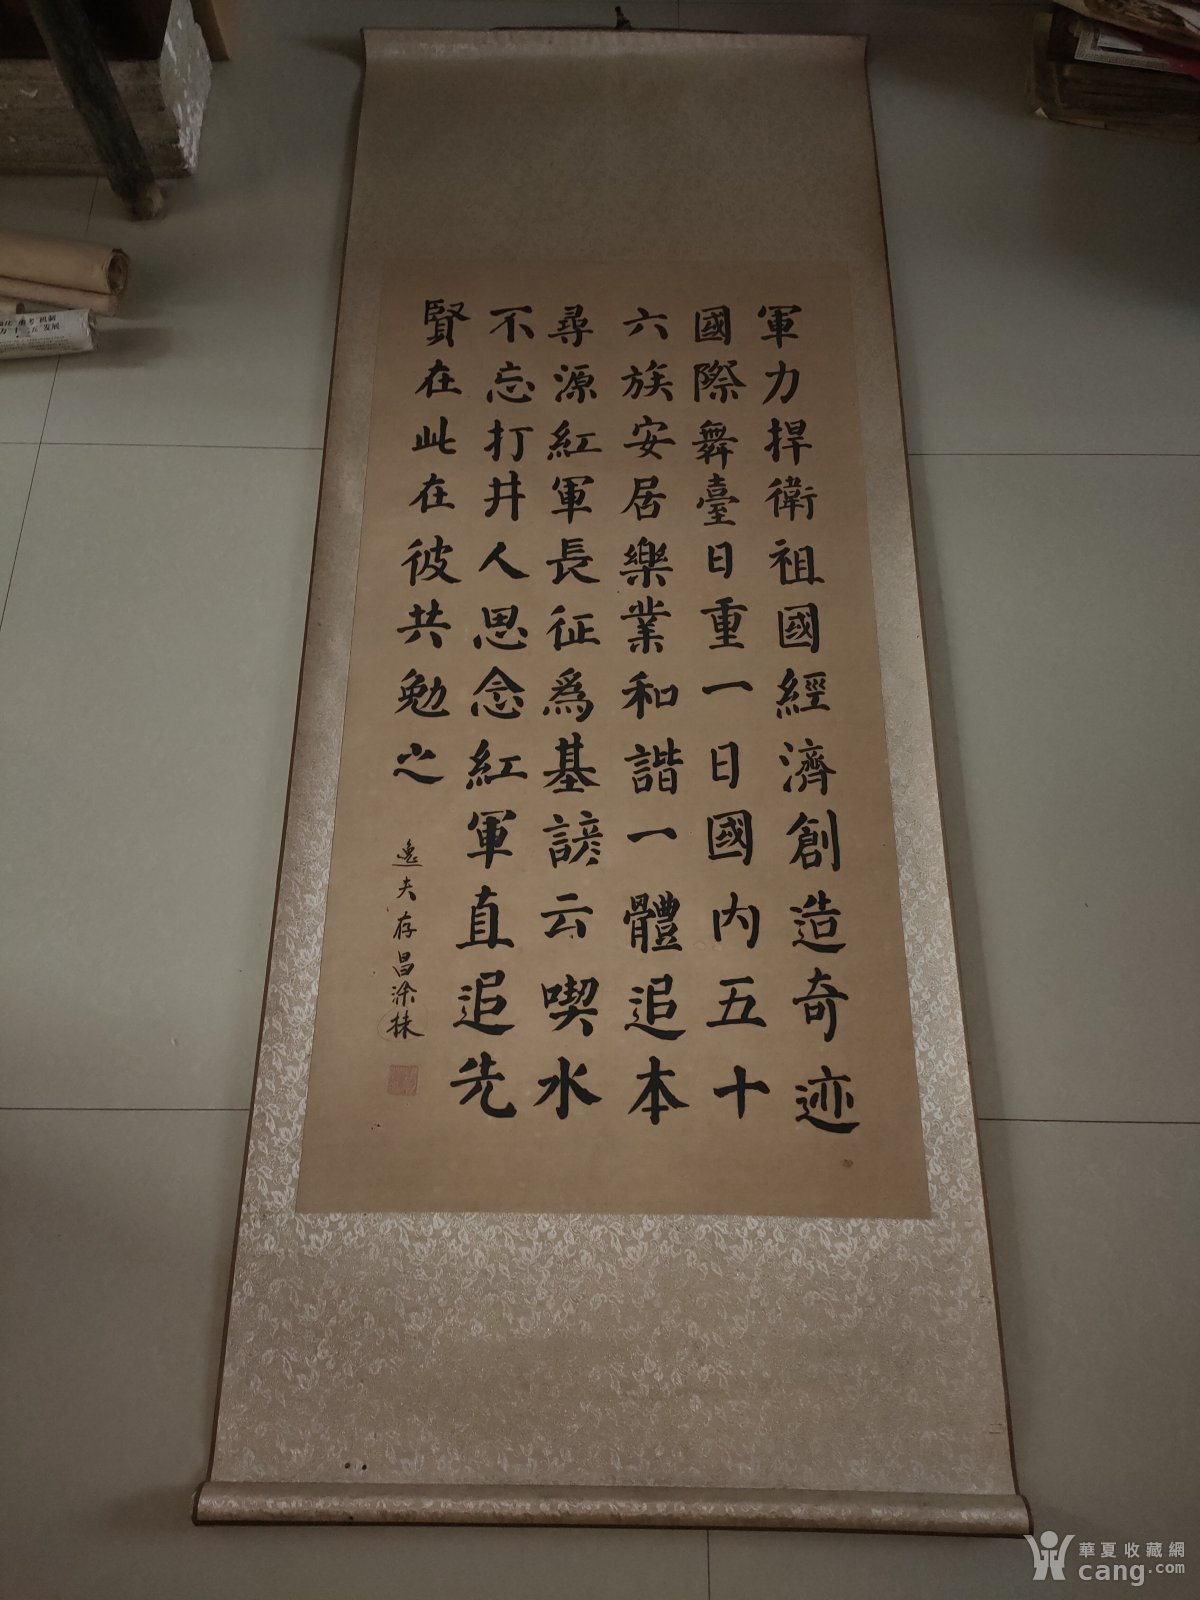 軍力捍衛祖國經濟創造奇迹
國際舞臺日重一日國内五十
六族安居樂業和諧一體追本
尋源紅軍長征爲基諺云喫水
不忘打井人思念紅軍直追先
賢在此在彼共勉之
逸夫存昌涂抹
華夏收藏網
cang.com